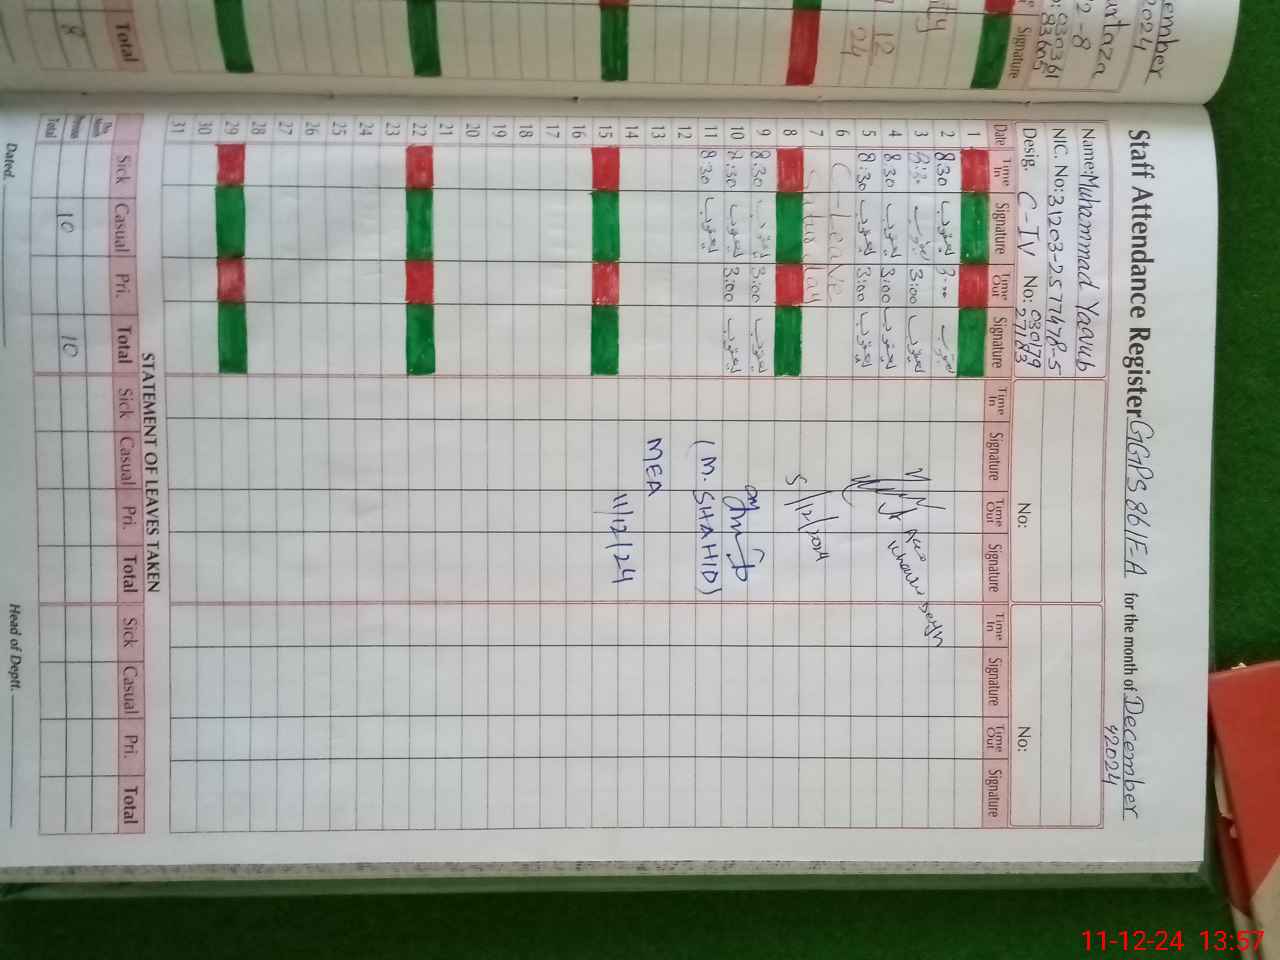 Staff Attendance Register GGPS 86/EA for the month of December 2024
Name: Muhammad Yaqub
NIC. No: 31203-2577478-5
Desig. C-IV No: 030179
27183
No:
No:
Date Time In Signature Time Out Signature Time In Signature Time Out Signature Time In Signature Time Out Signature
1
2 8:30 یعقوب 3:00 یعقوب
3 8:30 یعقوب 3:00 یعقوب
4 8:30 یعقوب 3:00 یعقوب
5 8:30 یعقوب 3:00 یعقوب
6 C-Leave
7 Saturday
8
9 8:30 یعقوب 3:00 یعقوب
10 8:30 یعقوب 3:00 یعقوب
11 8:30 یعقوب
12
13
14
15
16
17
18
19
20
21
22
23
24
25
26
27
28
29
30
31
5/12/2024
(M. SHAHID)
MEA
11/12/24
STATEMENT OF LEAVES TAKEN
Sick Casual Pri. Total Sick Casual Pri. Total Sick Casual Pri. Total
This Month
Previous 10 10
Total
Dated.
Head of Deptt.
ember
2024
urtaza
2-8
030361
83605
Signature
12
24
Total
8
11-12-24 13:57